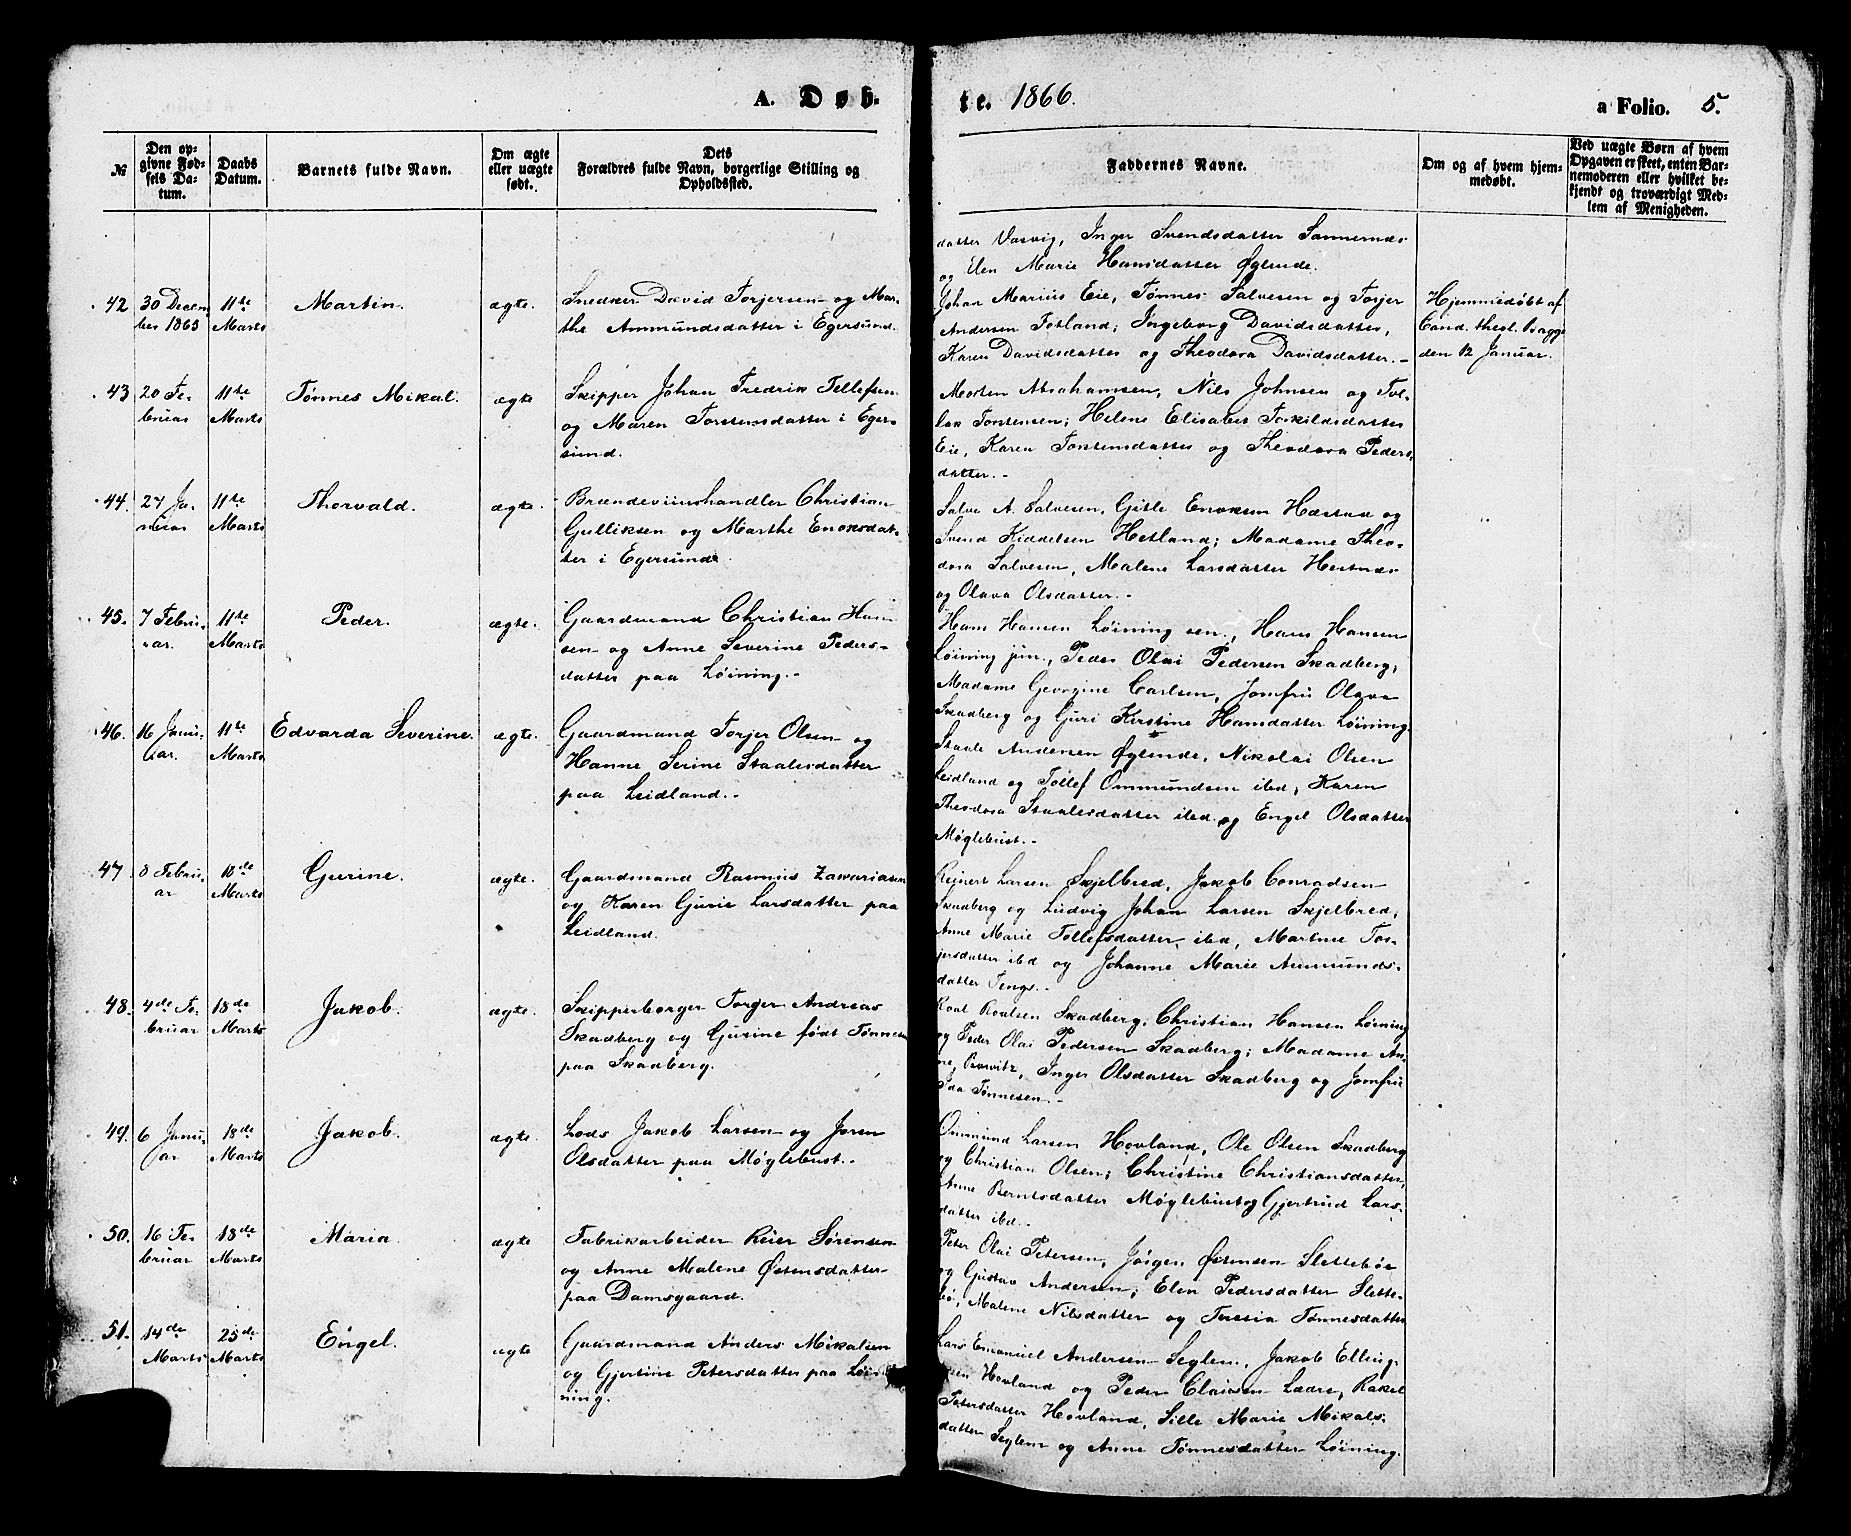 A. Døb-
te. 1866.
a Folio. 5.
№
Den op-
givne Fød-
sels Da-
tum.
Daabs
Datum.
Barnets fulde Navn.
Om ægte
eller uægte
født.
Dets
Forældres fulde Navn, borgerlige Stilling og
Opholdssted.
Faddernes Navne.
Om og af hvem hjem-
medøbt.
Ved uægte Børn af hvem
Opgaven er skeet, enten Bar-
nemoderen eller hvilket be-
kjendt og troværdigt Med-
lem af Menigheden.
datter Vasvig, Inger Svendsdatter Sannernæs
og Elen Marie Hansdatter Øglende.
42
30 Decem
ber 1865
11te
Marts
Martin.
ægte.
Snedker David Torjersen og Mar-
the Ammundsdatter i Egersund.
Johan Marius Eie, Tønnes Salvesen og Torjer
Andersen Fotland; Ingeborg Davidsdatter,
Karen Davidsdatter og Theodora Davidsdatter.-
Hjemmedøbt af
Cand. theol. Bagge
den 12 Januar.
43
20 Fe-
bruar
11te
Marts
Tønnes Mikal.
ægte
Skipper Johan Fredrik Tellefsen
og Maren Torstensdatter i Eger-
sund.
Morten Abrahamsen, Nils Johnsen og Tol-
lak Torstensen; Helene Elisabet Torkildsdatter
Eie, Karen Torstensdatter og Theodora Peders-
datter.-
44.
27 Ja-
nuar
11te
Marts
Thorvald.
ægte.
Brændeviinshandler Christian
Gulliksen og Marthe Enoksdat-
ter i Egersund
Salve A. Salvesen, Gitle Enoksen Hæstad og
Svend Kiddelsen Hetland; Madame Theo-
dora Salvesen, Malene Larsdatter Hestnæs
og Olava Olsdatter.-
45.
7 Febru-
ar.
11te
Marts
Peder.
ægte.
Gaardmand Christian Han
sen og Anne Severine Peders-
datter paa Løining.-
Hans Hansen Løining sen., Hans Hansen
Løining jun., Peder Olai Pedersen Skadberg;
Madame Georgine Carlsen, Jomfru Olava
Skadberg og Guri Kirstine Hansdatter Løining.
46.
16 Janu-
ar.
11te
Marts
Edvarda Severine.
ægte.
Gaardmand Torjer Olsen og
Hanne Serine Staalesdatter
paa Leidland.-
Staale Andersen Øglende, Nikolai Olsen
Leidland og Tollef Ommundsen ibd; Karen
Theodora Staalesdatter ibd. og Engel Olsdatter
Møglebust.-
47
8 Februar-
ar
18de
Marts
Gurine.
ægte.
Gaardmand Rasmus Zakariasen
og Karen Gurie Larsdatter paa
Leidland.
Reinert Larsen Skjelbred, Jakob Conradsen
Skadberg og Ludvig Johan Larsen Skjelbred;
Anne Marie Tollefsdatter ibd, Martine Tor-
jersdatter ibd og Johanne Marie Ammunds-
datter Tengs.-
48.
4de Fe-
bruar
18de
Marts
Jakob.
ægte.
Skipperborger Torger Andreas
Skadberg og Gurine født Tønnesen
paa Skadberg.
Roal Roalsen Skadberg, Christian Hansen Løining
og Peder Olai Pedersen Skadberg; Madame An-
ne, Inger Olsdatter Skadberg og Jomfru
Ida Tønnesen.-
49.
6 Janu-
ar
18de
Marts
Jakob.
ægte.
Lods Jakob Larsen og Joren
Olsdatter paa Møglebust.-
Ommund Larsen Hovland, Ole Olsen Skadberg
og Christian Olsen; Christine Christiansdatter,
Anne Berntsdatter Møglebust og Gjertrud Lars-
datter ibd.-
50.
16 Fe-
bruar
18de
Marts
Maria.
ægte
Fabrikarbeider Reier Sørensen
og Anne Malene Østensdatter
paa Damsgaard.
Peter Olai Petersen, Jørgen Østensen Slettebøe
og Gustav Andersen; Elen Pedersdatter Slette-
bø, Malene Nilsdatter og Teresia Tønnesdatter
51.
14de
Marts
25de
Marts
Engel.
ægte
Gaardmand Anders Mikalsen
og Gjertine Petersdatter paa Løi-
ning.
Lars Emanuel Andersen Seglem, Jakob Elling-
sen Hovland og Peder Claiosen Ladre; Rakel
Petersdatter Hovland, Sille Marie Mikals-
datter Seglem og Anne Tønnesdatter Løining.